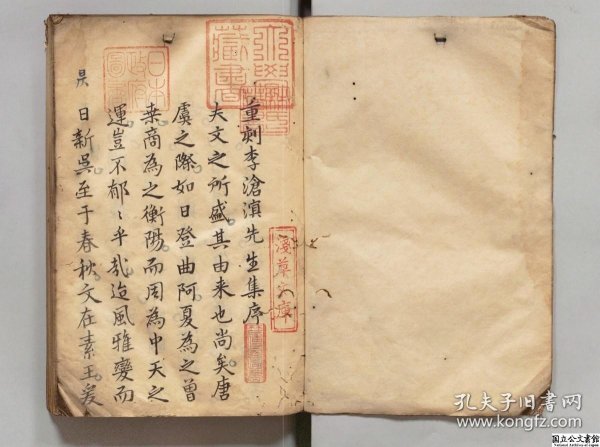 重刻李滄溟先生集序
夫文之所盛其由来也尚矣唐
虞之際如日登曲阿夏為之曾
桒商為之衡陽而周為中天之
運豈不郁〻乎哉迨風雅變而
日新吳至于春秋文在素王爰
昃
日本
政府
圖書
淺草文庫
孔夫子旧书网
www.kongfz.com
国立公文書館
National Archives of Japan